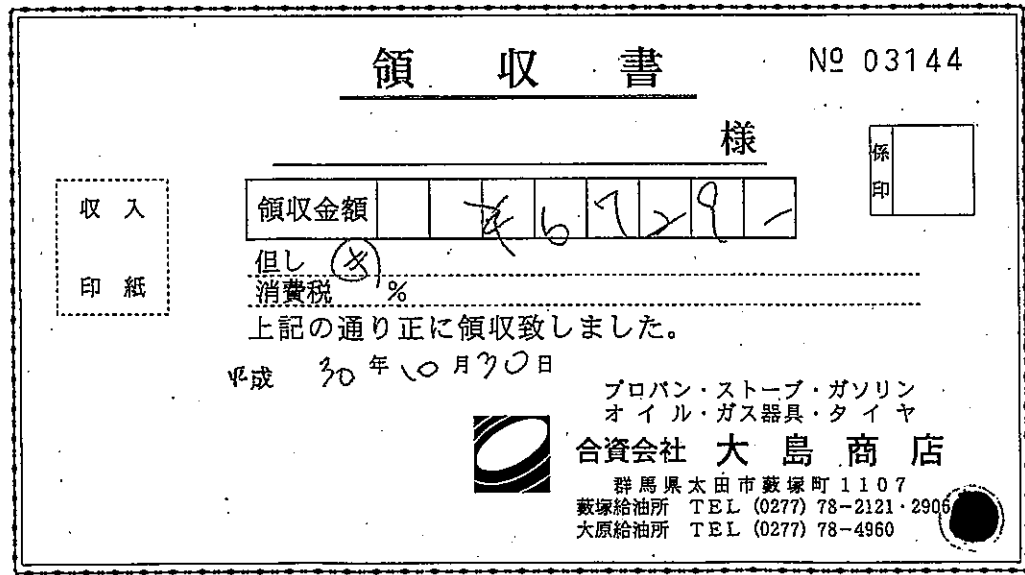 領収書 № 03144
様
係印
収入印紙
領収金額 ¥6729-
但し
消費税 %
上記の通り正に領収致しました。
平成 30年10月30日
プロパン・ストーブ・ガソリン
オイル・ガス器具・タイヤ
合資会社 大島商店
群馬県太田市藪塚町1107
藪塚給油所 TEL (0277) 78-2121・2906
大原給油所 TEL (0277) 78-4960